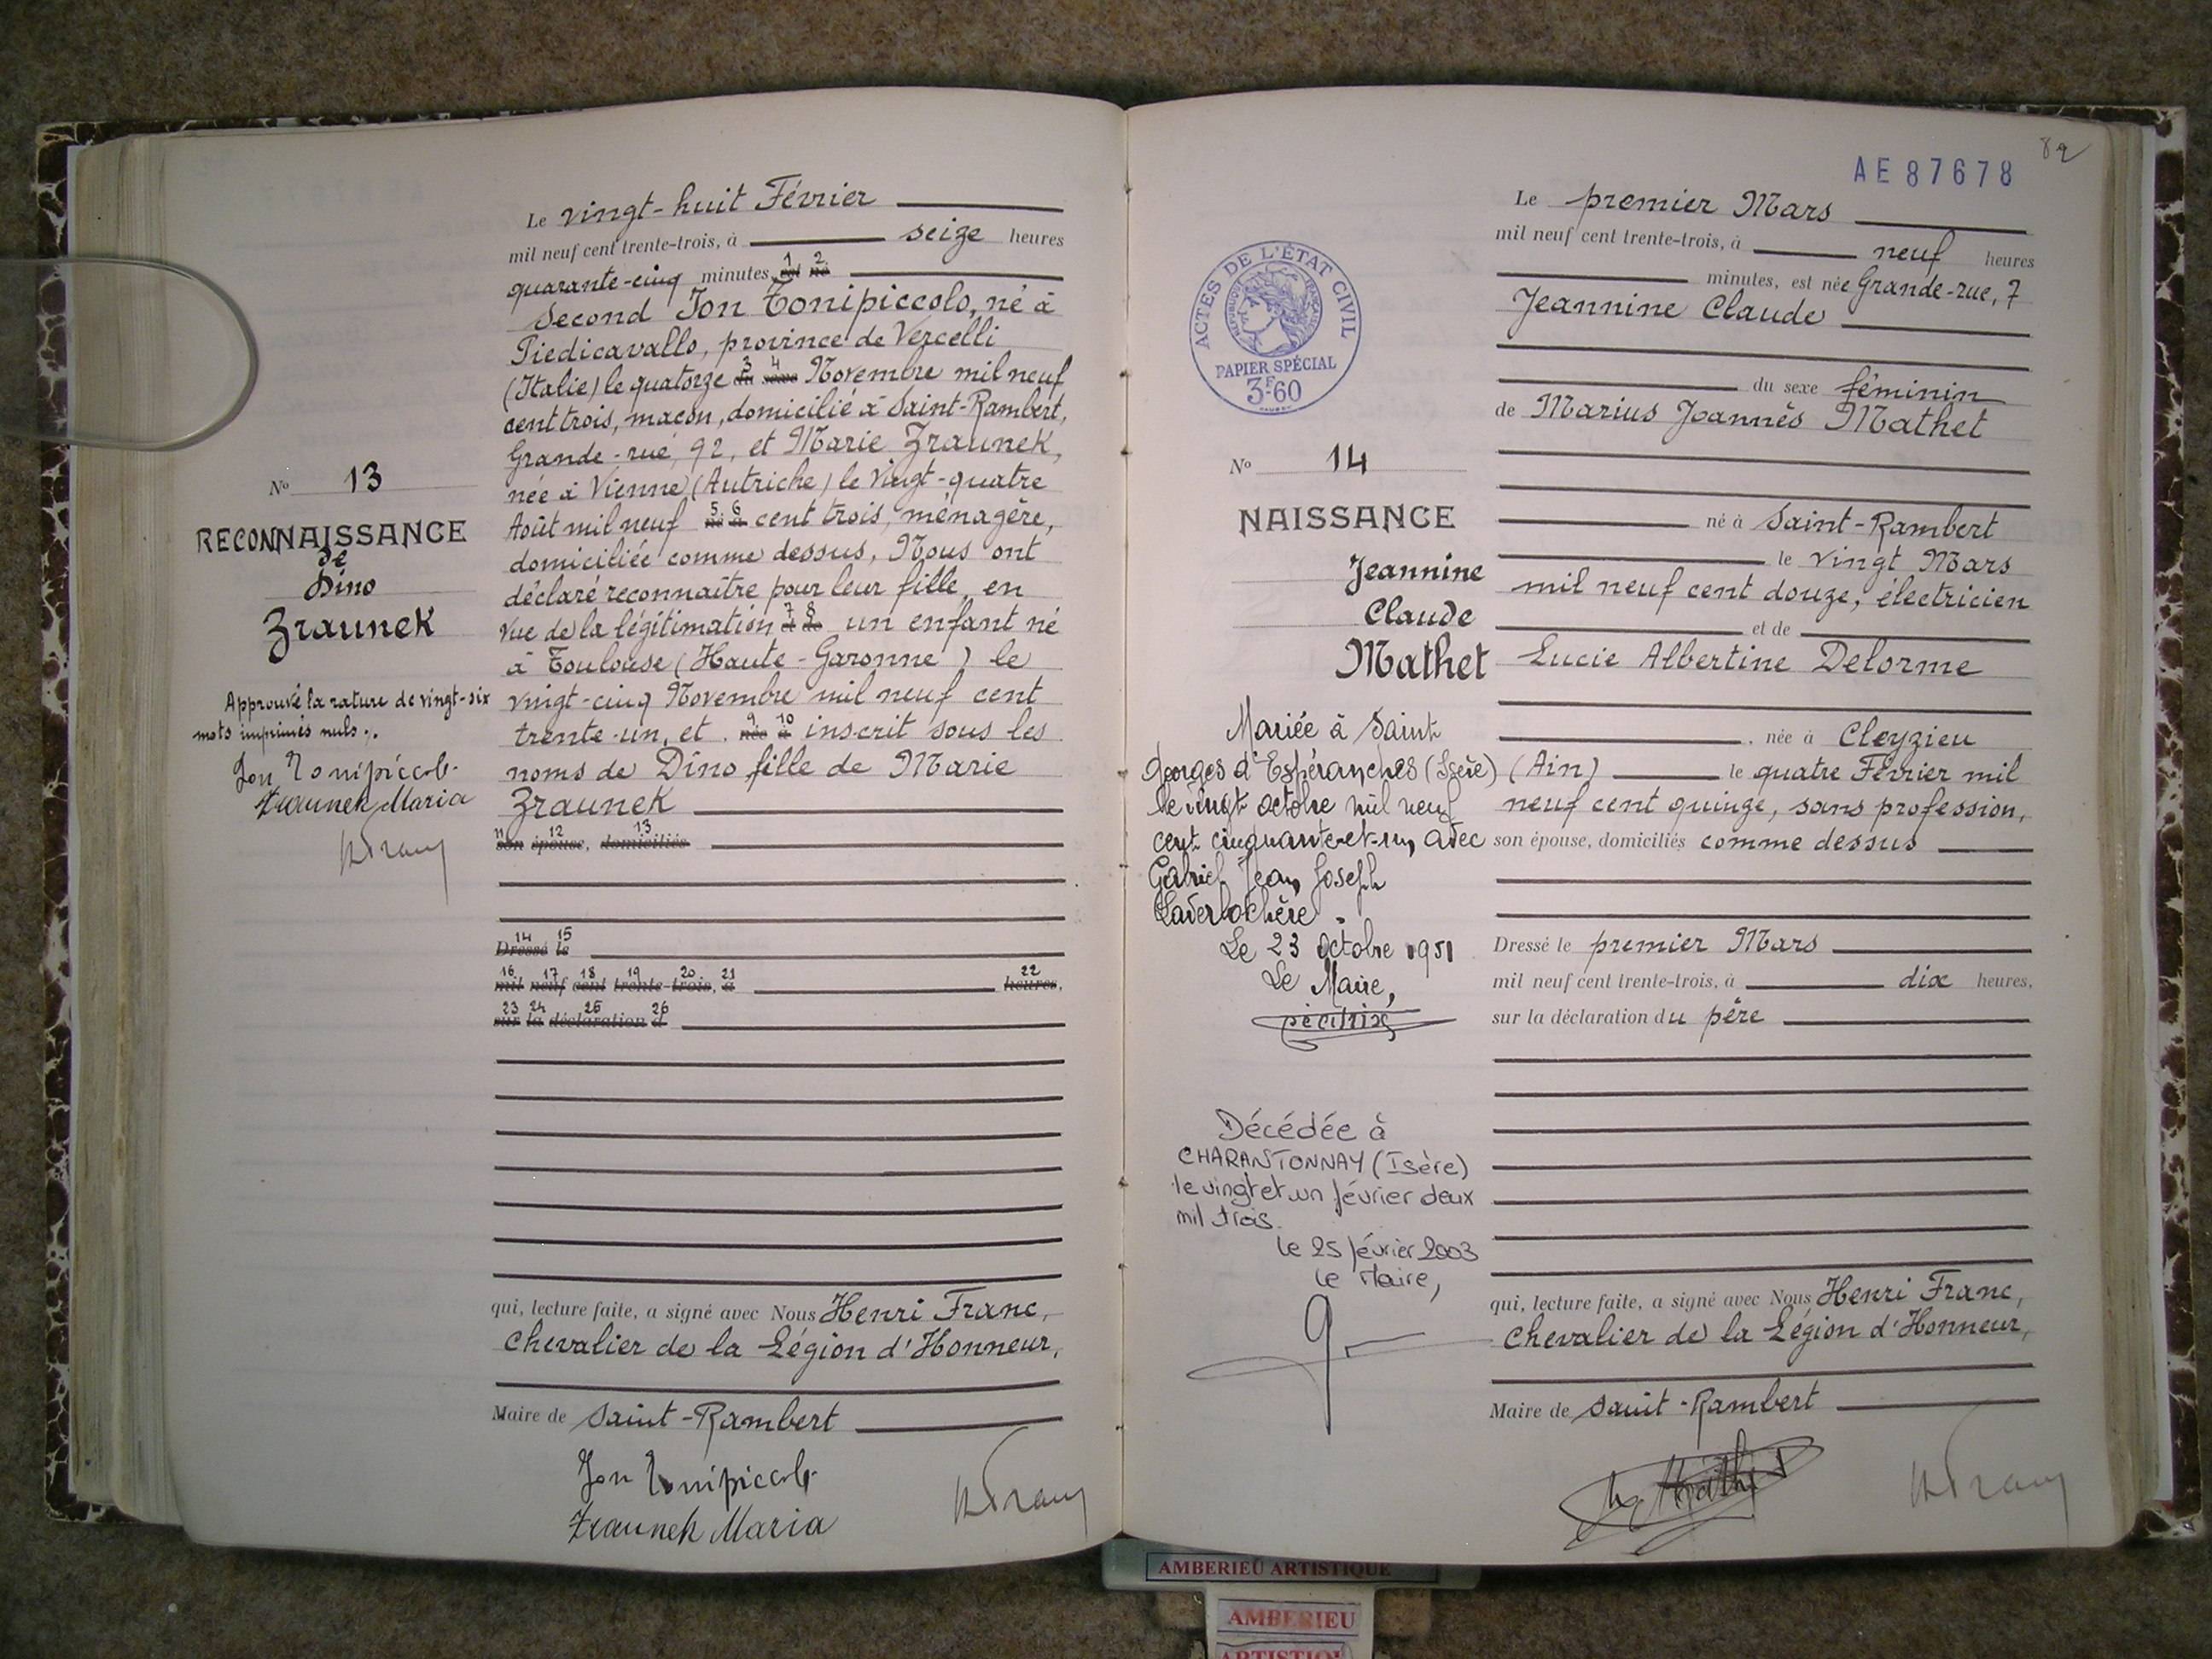 Le vingt-huit Février
mil neuf cent trente-trois, à seize heures
quarante-cinq minutes, 1 est 2 né
Second Jon Tonipiccolo, né à
Piedicavallo, province de Vercelli
(Italie) le quatorze 3 du 4 sexe Novembre mil neuf
cent trois, maçon, domicilié à Saint-Rambert,
Grande-rue, 92, et Marie Zraunek,
née à Vienne (Autriche) le vingt-quatre
Août mil neuf 5 né 6 à cent trois, ménagère,
domiciliée comme dessus, Nous ont
déclaré reconnaître pour leur fille, en
vue de la légitimation 7 et 8 de un enfant né
à Toulouse (Haute-Garonne) le
vingt-cinq Novembre mil neuf cent
trente-un, et 9 née 10 à inscrit sous les
noms de Dino fille de Marie
Zraunek
11 son 12 épouse, 13 domiciliés
14 Dressé 15 le
16 mil 17 neuf 18 cent 19 trente-20 trois, 21 à 22 heures,
23 sur 24 la 25 déclaration 26 d
qui, lecture faite, a signé avec Nous Henri Franc,
Chevalier de la Légion d'Honneur,
Maire de Saint-Rambert
Jon Tonipiccolo
Zraunek Maria
HFranc
No 13
RECONNAISSANCE
de
Dino
Zraunek
Approuvé la rature de vingt-six
mots imprimés nuls.
Jon Tonipiccolo
Zraunek Maria
HFranc
82
AE 87678
ACTES DE L'ÉTAT CIVIL
RÉPUBLIQUE FRANÇAISE
PAPIER SPÉCIAL
3F.60
No 14
NAISSANCE
Jeannine
Claude
Mathet
Mariée à Saint
Georges d'Espéranches (Isère)
le vingt octobre mil neuf
cent cinquante-et-un avec
Gabriel Jean Joseph
Laverlochère.
Le 23 octobre 1951
Le Maire,
Décédée à
CHARANTONNAY (Isère)
le vingt et un février deux
mil trois.
le 25 février 2003
le Maire,
Le premier Mars
mil neuf cent trente-trois, à neuf heures
minutes, est née Grande-rue, 7
Jeannine Claude
du sexe féminin
de Marius Joannès Mathet
né à Saint-Rambert
le vingt Mars
mil neuf cent douze, électricien
et de
Lucie Albertine Delorme
née à Cleyzieu
(Ain) le quatre Février mil
neuf cent quinze, sans profession,
son épouse, domiciliés comme dessus
Dressé le premier Mars
mil neuf cent trente-trois, à dix heures,
sur la déclaration du père
qui, lecture faite, a signé avec Nous Henri Franc,
Chevalier de la Légion d'Honneur,
Maire de Saint-Rambert
Mathet
HFranc
AMBERIEU ARTISTIQUE
AMBERIEU
ARTISTIQU